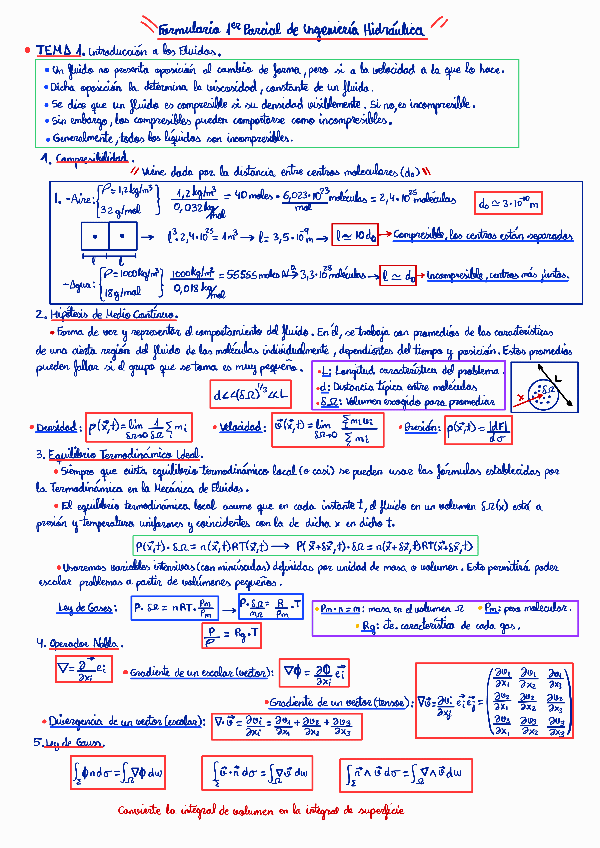 Formulario 1er Parcial de Ingeniería Hidráulica
• TEMA 1. Introducción a los Fluidos.
• Un fluido no presenta oposición al cambio de forma, pero si a la velocidad a la que lo hace.
• Dicha oposición la determina la viscosidad, constante de un fluido.
• Se dice que un fluido es compresible si su densidad visiblemente. Si no, es incompresible.
• Sin embargo, los compresibles pueden comportarse como incompresibles.
• Generalmente, todos los líquidos son incompresibles.
1. Compresibilidad.
// Viene dada por la distancia entre centros moleculares (d₀) //
1. -Aire: {ρ=1,2 kg/m³ 32 g/mol} 1,2 kg/m³ / 0,032 kg/mol = 40 moles · 6,023·10²³ moléculas/mol = 2,4·10²⁵ moléculas d₀ ≃ 3·10⁻¹⁰ m
l l → l³·2,4·10²⁵ = 1m³ → l = 3,5·10⁻⁹ m → l ≃ 10 d₀ → Compresible, los centros están separados
-Agua: {ρ=1000 kg/m³ 18 g/mol} 1000 kg/m³ / 0,018 kg/mol = 55555 moles → 3,3·10²⁸ moléculas → l ≃ d₀ → Incompresible, centros más juntos.
2. Hipótesis de Medio Continuo.
• Forma de ver y representar el comportamiento del fluido. En él, se trabaja con promedios de las características
de una cierta región del fluido de las moléculas individualmente, dependientes del tiempo y posición. Estos promedios
pueden fallar si el grupo que se toma es muy pequeño.
d ≪ (δΩ)^1/3 ≪ L
• L: Longitud característica del problema.
• d: Distancia típica entre moléculas
• δΩ: Volumen escogido para promediar
L
x
• Densidad: ρ(x⃗,t) = lim δΩ→0 1/δΩ Σ mᵢ • Velocidad: v⃗(x⃗,t) = lim δΩ→0 Σ mᵢvᵢ / Σ mᵢ • Presión: p(x⃗,t) = |dF| / dσ
3. Equilibrio Termodinámico Local.
• Siempre que exista equilibrio termodinámico local (o casi) se pueden usar las fórmulas establecidas por
la Termodinámica en la Mecánica de Fluidos.
• El equilibrio termodinámico local asume que en cada instante t, el fluido en un volumen δΩ(x) está a
presión y temperatura uniformes y coincidentes con la de dicha x en dicho t.
P(x⃗,t)·δΩ = n(x⃗,t)RT(x⃗,t) → P(x⃗+δx⃗,t)·δΩ = n(x⃗+δx⃗,t)RT(x⃗+δx⃗,t)
• Usaremos variables intensivas (con minúsculas) definidas por unidad de masa o volumen. Esto permitirá poder
escalar problemas a partir de volúmenes pequeños.
Ley de Gases: P·δΩ = nRT· Pm/Pm → P·δΩ/mΩ = R/Pm · T
• Pm·n = m: masa en el volumen Ω • Pm: peso molecular.
• Rg: cte. característica de cada gas.
P/ρ = Rg·T
4. Operador Nabla.
∇ = ∂/∂xᵢ e⃗ᵢ • Gradiente de un escalar (vector): ∇ϕ = ∂ϕ/∂xᵢ e⃗ᵢ
• Gradiente de un vector (tensor): ∇v⃗ = ∂vᵢ/∂xⱼ e⃗ᵢe⃗ⱼ = (∂v₁/∂x₁ ∂v₁/∂x₂ ∂v₁/∂x₃
∂v₂/∂x₁ ∂v₂/∂x₂ ∂v₂/∂x₃
∂v₃/∂x₁ ∂v₃/∂x₂ ∂v₃/∂x₃)
• Divergencia de un vector (escalar): ∇·v⃗ = ∂vᵢ/∂xᵢ = ∂v₁/∂x₁ + ∂v₂/∂x₂ + ∂v₃/∂x₃
5. Ley de Gauss.
∫Σ ϕn dσ = ∫Ω ∇ϕ dω ∫Σ v⃗·n⃗ dσ = ∫Ω ∇v⃗ dω ∫Σ n⃗ ∧ v⃗ dσ = ∫Ω ∇∧v⃗ dω
Convierte la integral de volumen en la integral de superficie